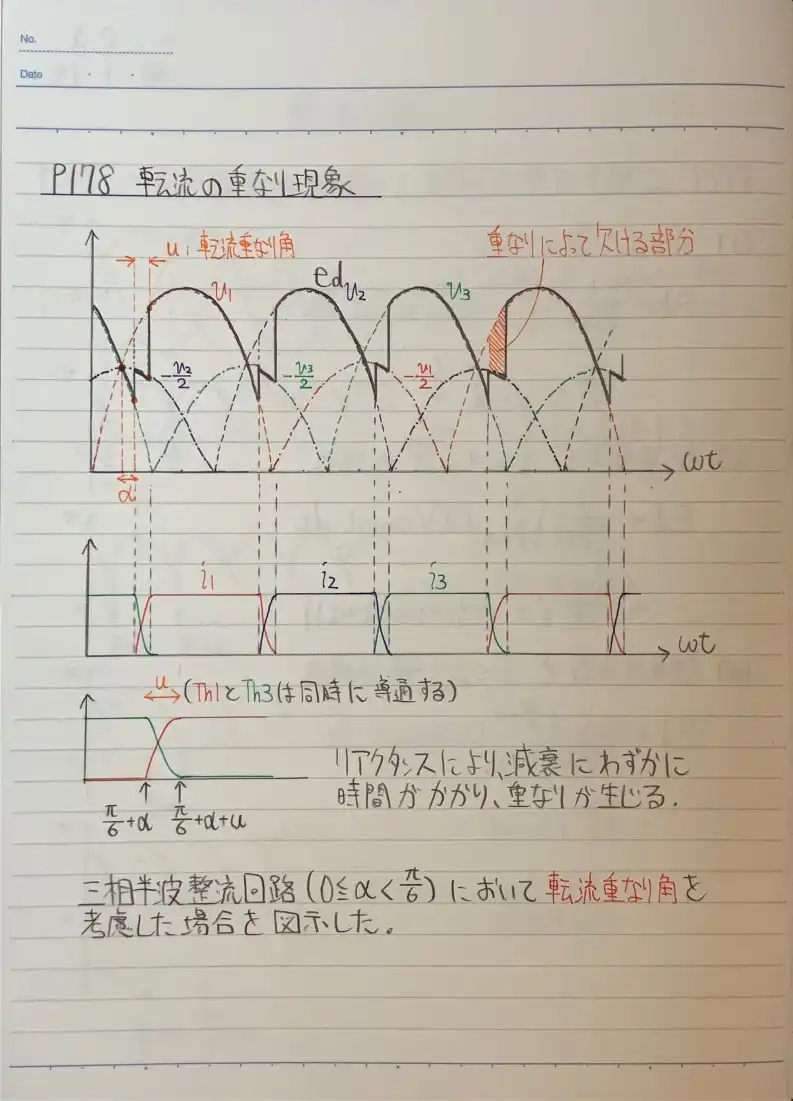 No.
Date
P178 転流の重なり現象
u:転流重なり角
重なりによって欠ける部分
v1
ed
v2
v3
-v2/2
-v3/2
-v1/2
ωt
α
i1
i2
i3
ωt
u
(Th1とTh3は同時に導通する)
リアクタンスにより、減衰にわずかに
時間がかかり、重なりが生じる.
π/6+α
π/6+α+u
三相半波整流回路(0≦α<π/6)において転流重なり角を
考慮した場合を図示した。